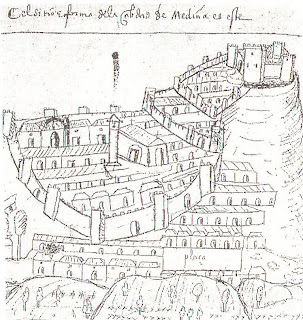 El sitio e forma dela Cibdad de Medina es este
plaça